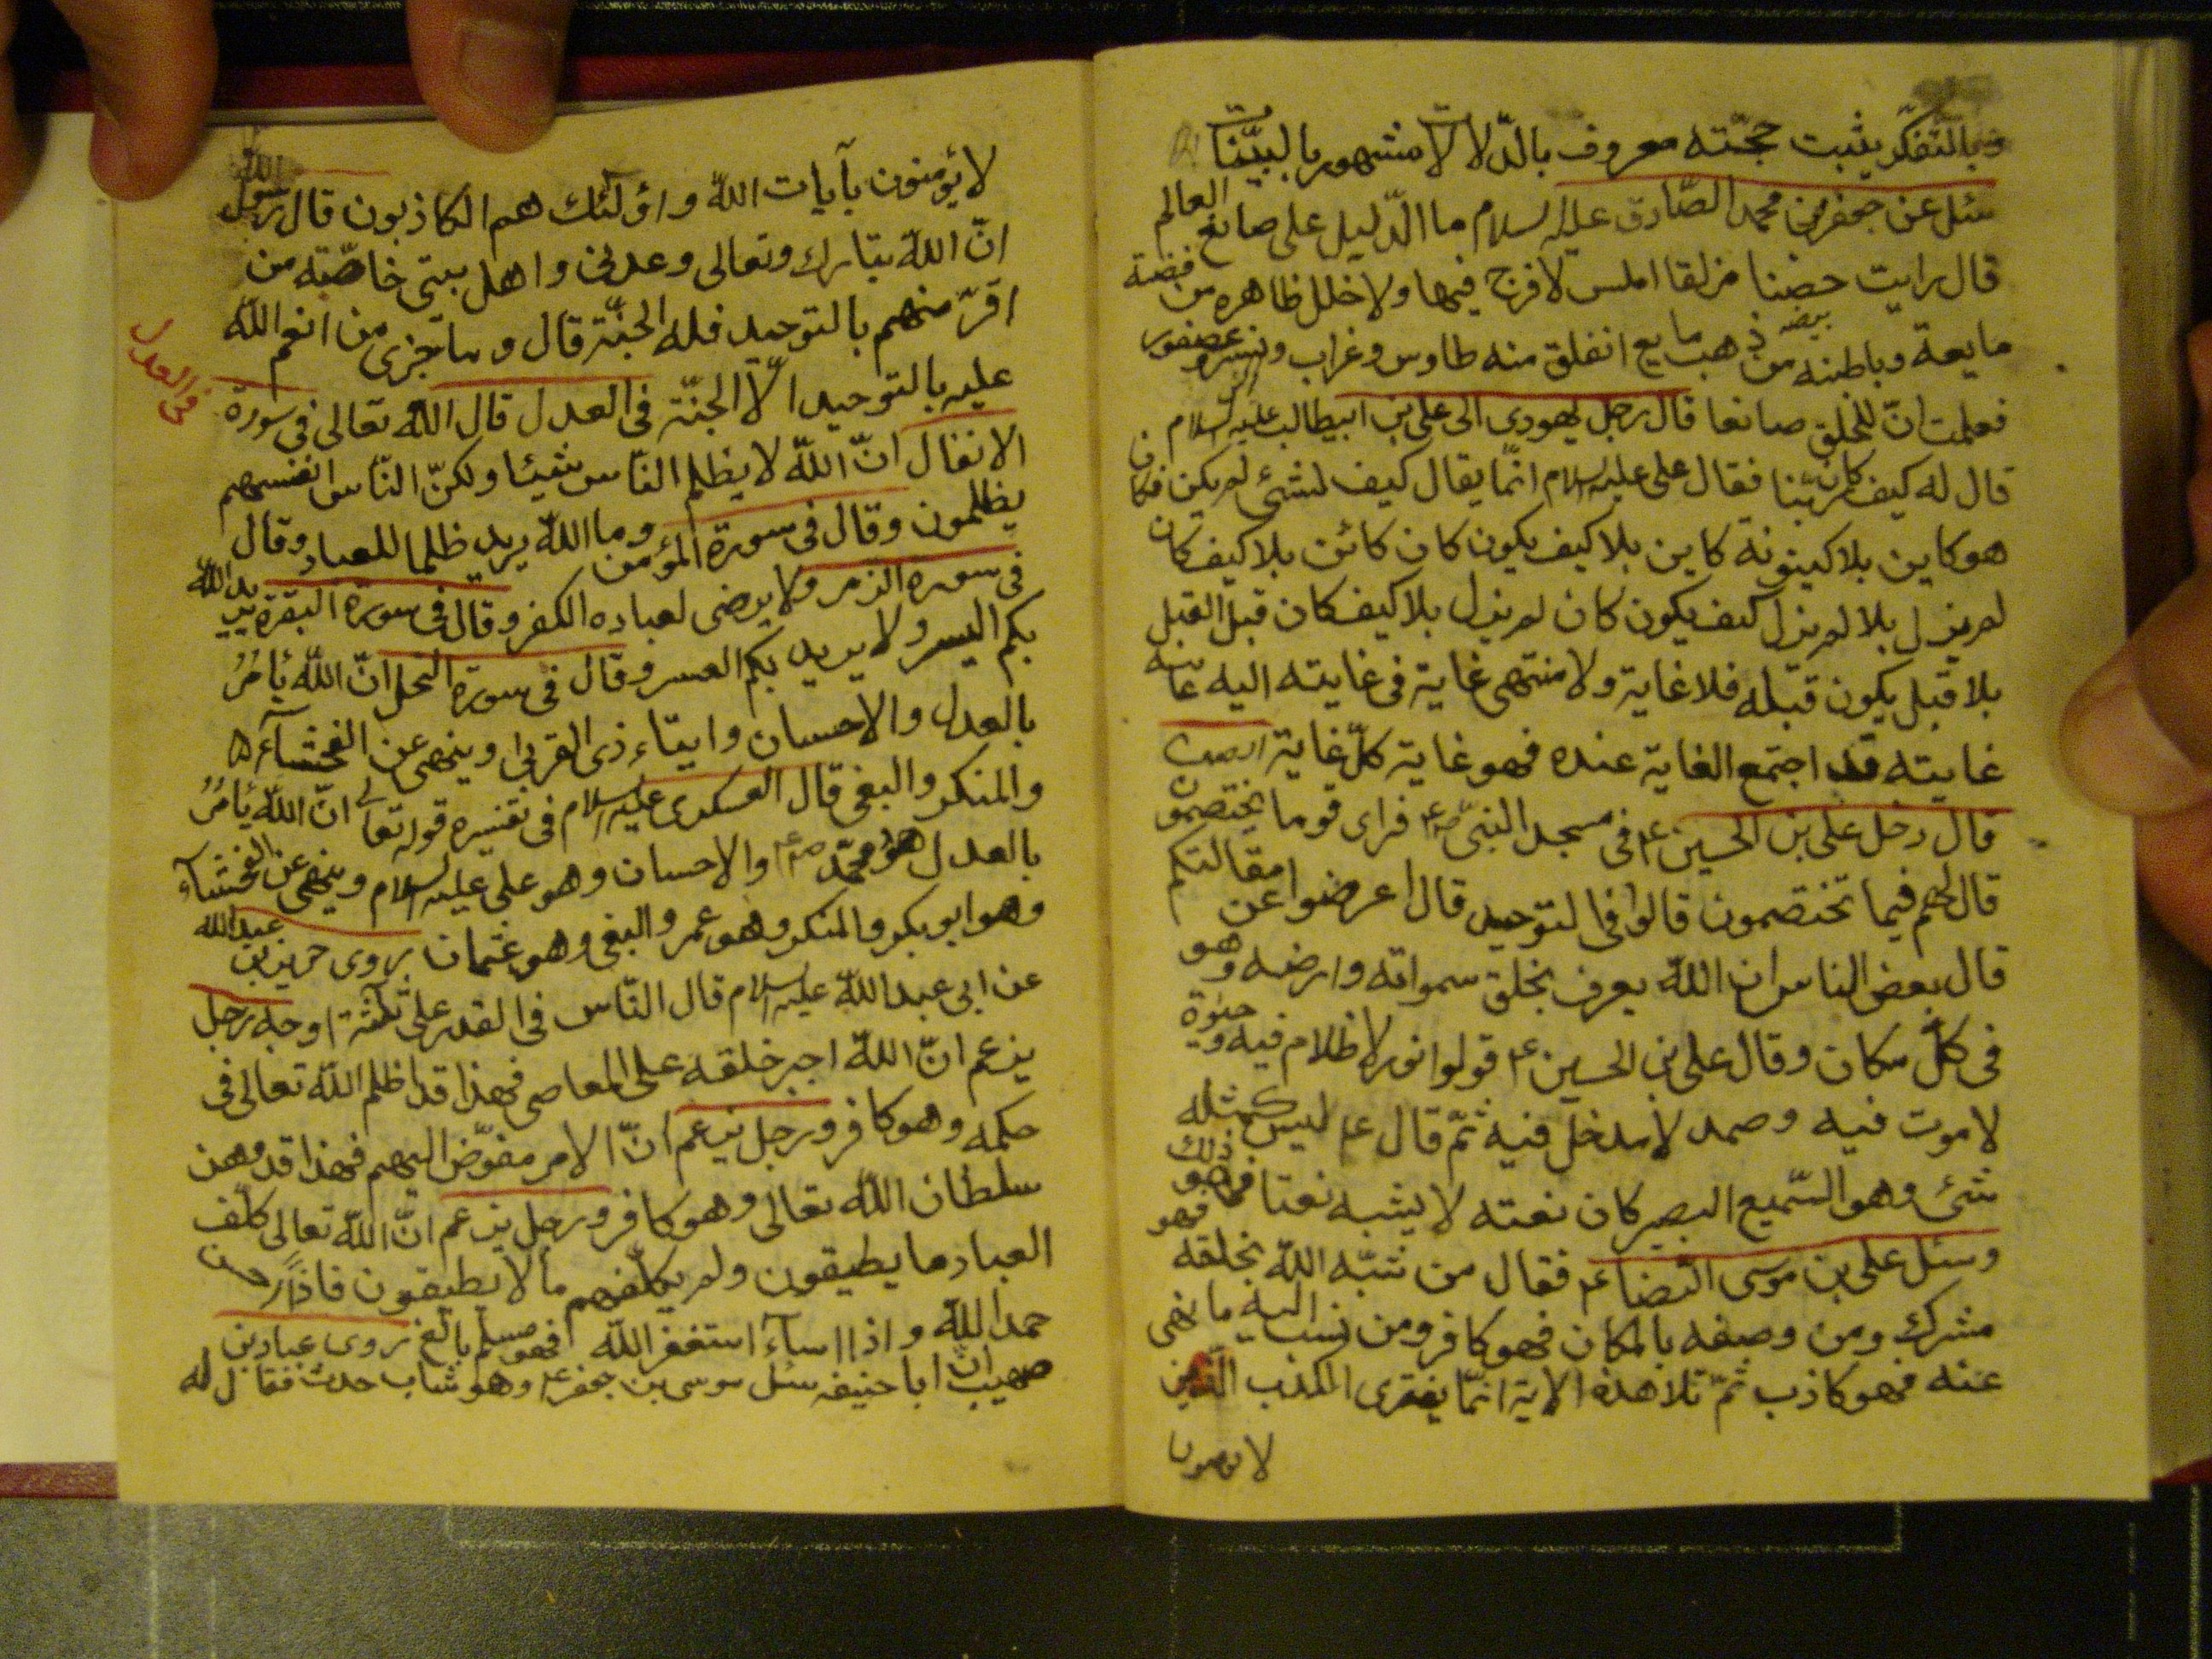 وبالتّفكّر يثبت حجّته معروف بالدّلالات مشهور بالبيّنات
سئل عن جعفر بن محمد الصّادق عليه السلام ما الدّليل على صانع العالم
قال رايت حضنا مزلقا املس لا فرج فيها ولا خلل ظاهره من فضة
مايعة وباطنه من ذهب مايع انفلق منه طاوس وغراب ونسر وعصفور
فعلمت انّ للخلق صانعا قال رجل يهودى الى على بن ابيطالب عليه السلام
قال له كيف كان ربّنا فقال على عليه السلام انّما يقال كيف لشئ لم يكن فكان
هو كاين بلا كينونة كاين بلا كيف يكون كان كائن بلا كيف كان
لم يزل بلا لم يزل كيف يكون كان لم يزل بلا كيف كان قبل القبل
بلا قبل يكون قبله فلا غاية ولا منتهى غاية فى غايته اليه غاية
غايته قد اجتمع الغاية عنده فهو غاية كلّ غاية ايضا
قال دخل على بن الحسين ع فى مسجد النبىّ ص فراى قوما يختصمون
قال لهم فيما تختصمون قالوا فى التوحيد قال اعرضوا عن مقالتكم
قال بعض الناس ان الله يعرف بخلق سمواته وارضه وهو
فى كلّ مكان وقال على بن الحسين ع قولوا نور لا ظلام فيه وحيوة
لا موت فيه وصمد لا مدخل فيه ثمّ قال ع ليس كمثله
شئ وهو السّميع البصير كان نعته لا يشبه نعتا فهو ذلك
وسئل على بن موسى الرّضا ع فقال من شبّه الله بخلقه فهو
مشرك ومن وصفه بالمكان فهو كافر ومن نسب اليه ما نهى
عنه فهو كاذب ثمّ تلا هذه الاية انّما يفترى الكذب الّذين
لا يومنون
لا يؤمنون بآيات الله واولئك هم الكاذبون قال رسول الله
انّ الله تبارك وتعالى وعدنى واهل بيتى خاصّته من
اقرّ منهم بالتوحيد فله الجنّة قال وما جزى من انعم الله
عليه بالتوحيد الّا الجنّة فى العدل قال الله تعالى فى سورة
فى العدل
الانفال انّ الله لا يظلم النّاس شيئا ولكنّ النّاس انفسهم
يظلمون وقال فى سورة المؤمن وما الله يريد ظلما للعباد وقال
فى سوره الزمر ولا يرضى لعباده الكفر وقال فى سورة البقرة يريد الله
بكم اليسر ولا يريد بكم العسر وقال فى سورة النحل انّ الله يأمر
بالعدل والاحسان وايتاء ذى القربى وينهى عن الفحشآء
والمنكر والبغى قال العسكرى عليه السلام فى تفسيره قوله تعالى انّ الله يأمر
بالعدل هو محمّد ص والاحسان وهو على عليه السلام وينهى عن الفحشآء
وهو ابوبكر والمنكر وهو عمر والبغى وهو عثمان روى حريز بن عبد الله
عن ابى عبد الله عليه السلام قال النّاس فى القدر على ثلثة اوجه رجل
يزعم انّ الله اجبر خلقه على المعاصى فهذا قد اظلم الله تعالى فى
حكمه وهو كافر ورجل يزعم انّ الامر مفوّض اليهم فهذا قد وهن
سلطان الله تعالى وهو كافر ورجل يزعم انّ الله تعالى كلّف
العباد ما يطيقون ولم يكلّفهم ما لا يطيقون فاذا احسن
حمد الله واذا اساء استغفر الله فهو مسلم بالغ روى عباد بن
صهيب انّ ابا حنيفه سئل موسى بن جعفر ع وهو شاب حدث فقال له